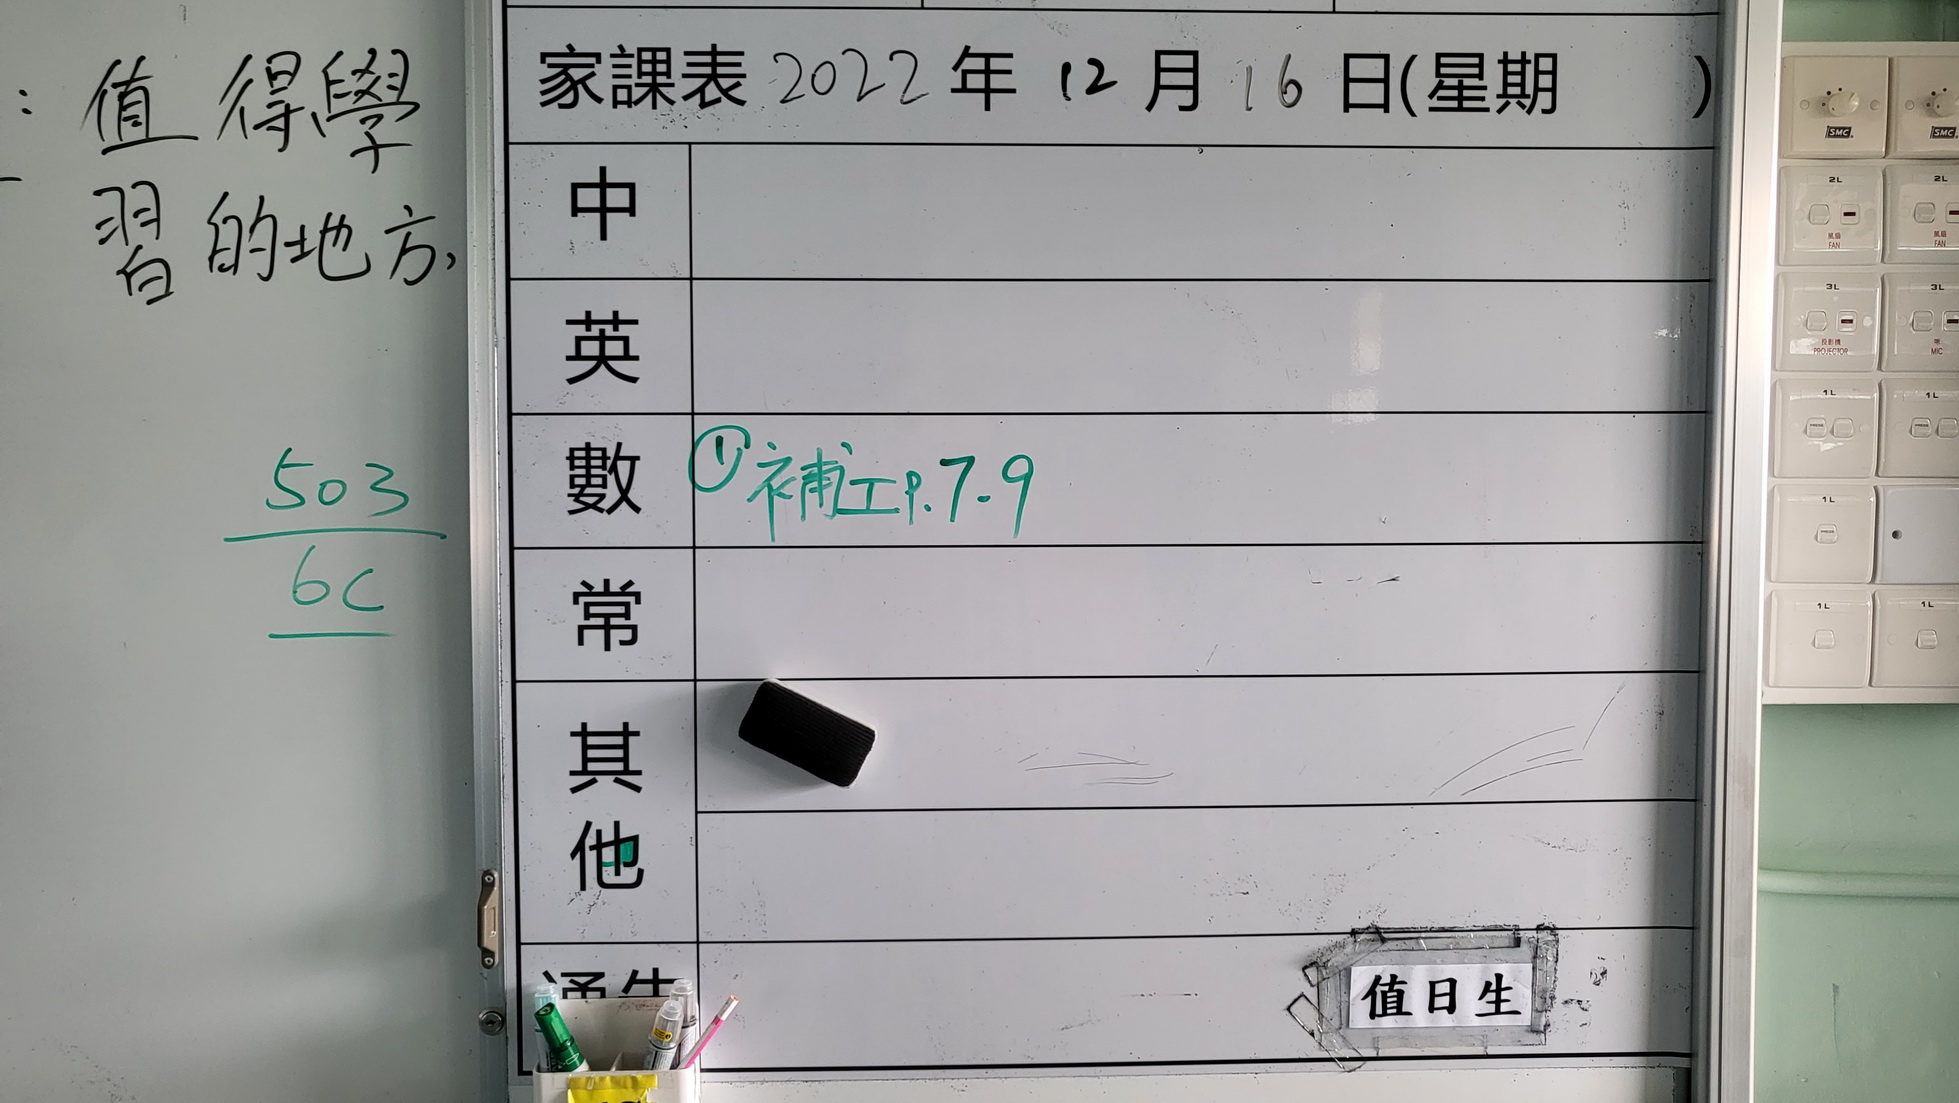 : 值得學
習的地方,
503
6C
家課表 2022 年 12 月 16 日(星期 )
中
英
數 ① 補工p.7-9
常
其他
通告
值日生
SMC
SMC
2L
2L
風扇
FAN
風扇
FAN
3L
3L
投影機
PROJECTOR
咪
MIC
1L
1L
1L
1L
1L